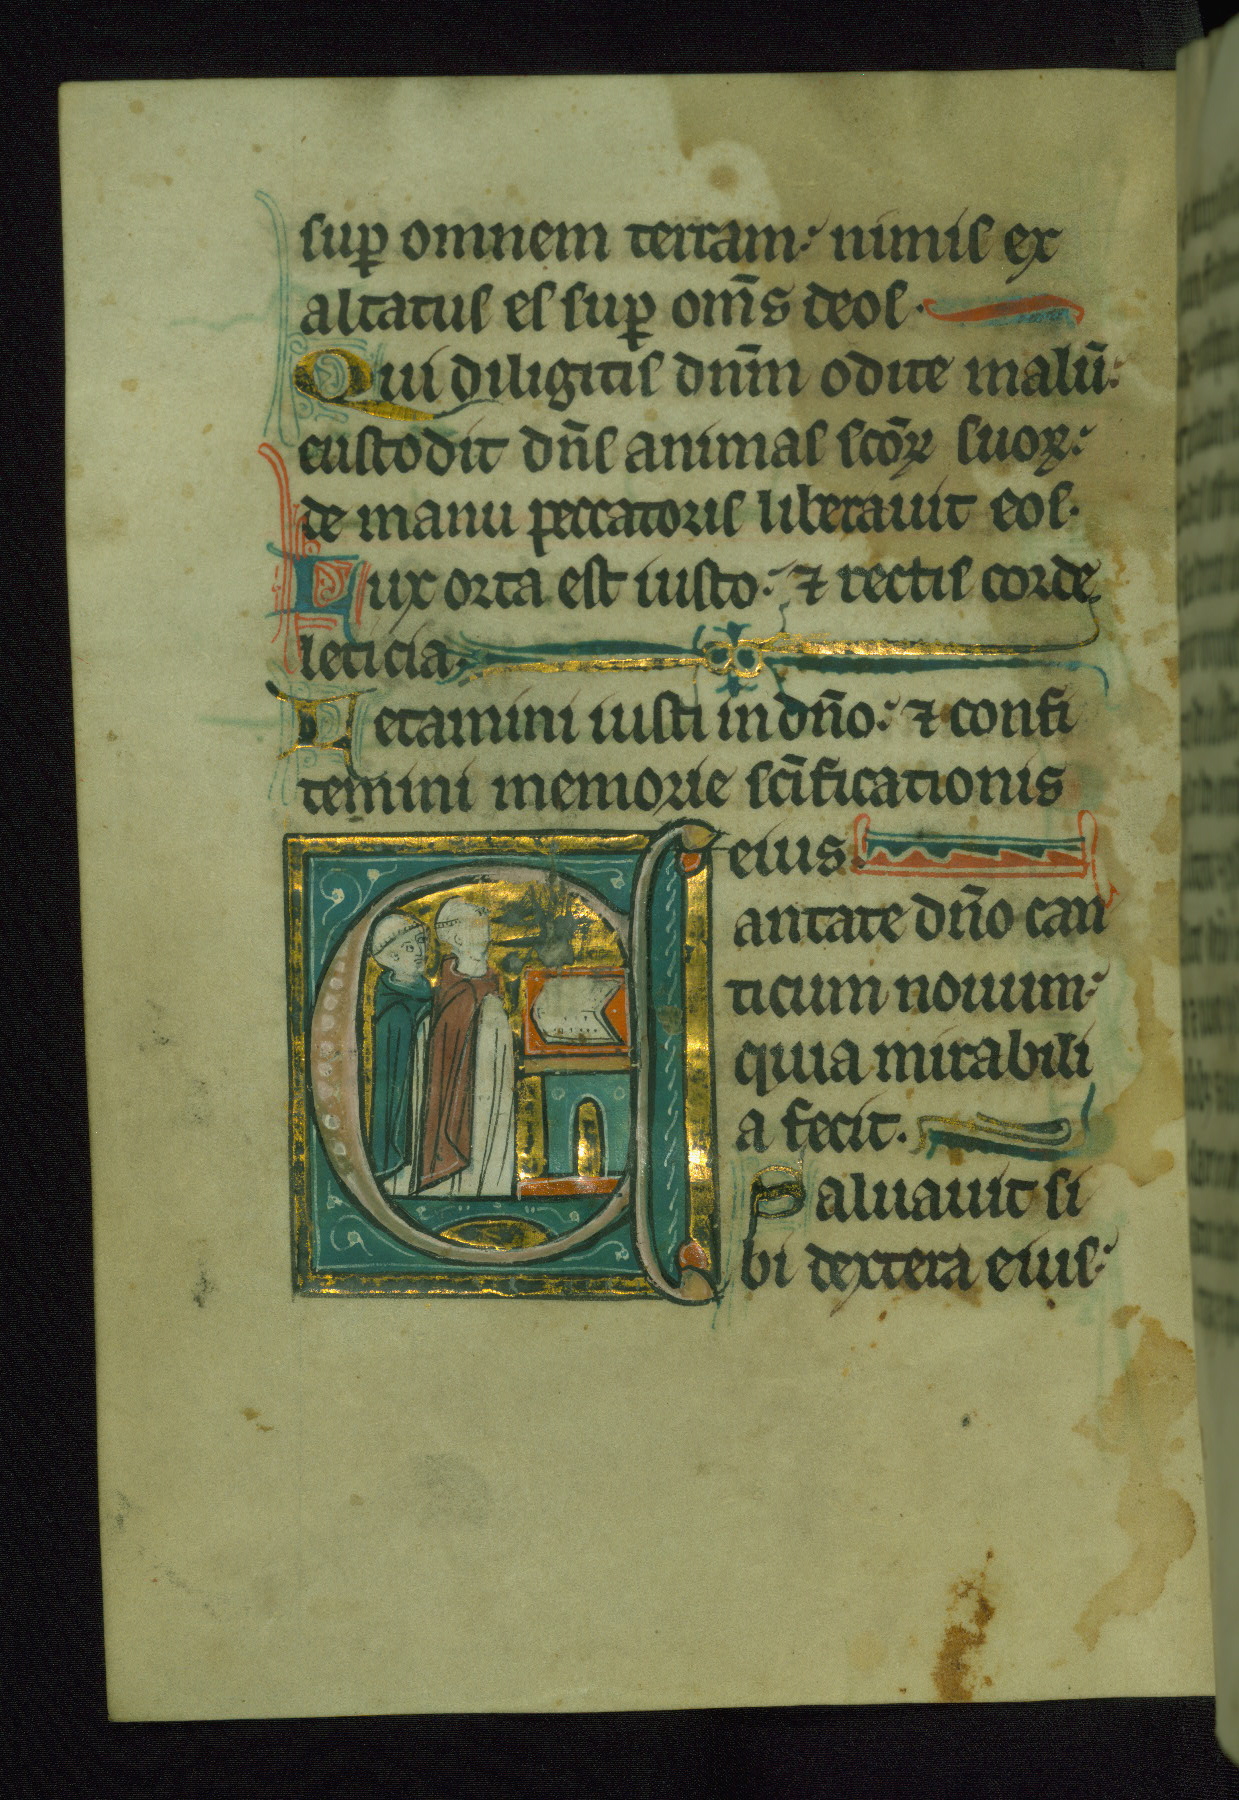 sup omnem terram: nimis ex
altatus es sup om̄s deos.
Qui diligitis dnm̄ odite malū:
custodit dn̄s animas sc̄oꝝ suoꝝ:
de manu peccatoris liberauit eos.
Lux orta est iusto: ⁊ rectis corde
leticia.
Letamini iusti in dn̄o: ⁊ confi
temini memorie sc̄ificationis
eius.
Cantate dn̄o can
ticum nouum:
quia mirabili
a fecit.
Saluauit si
bi dextera eius: